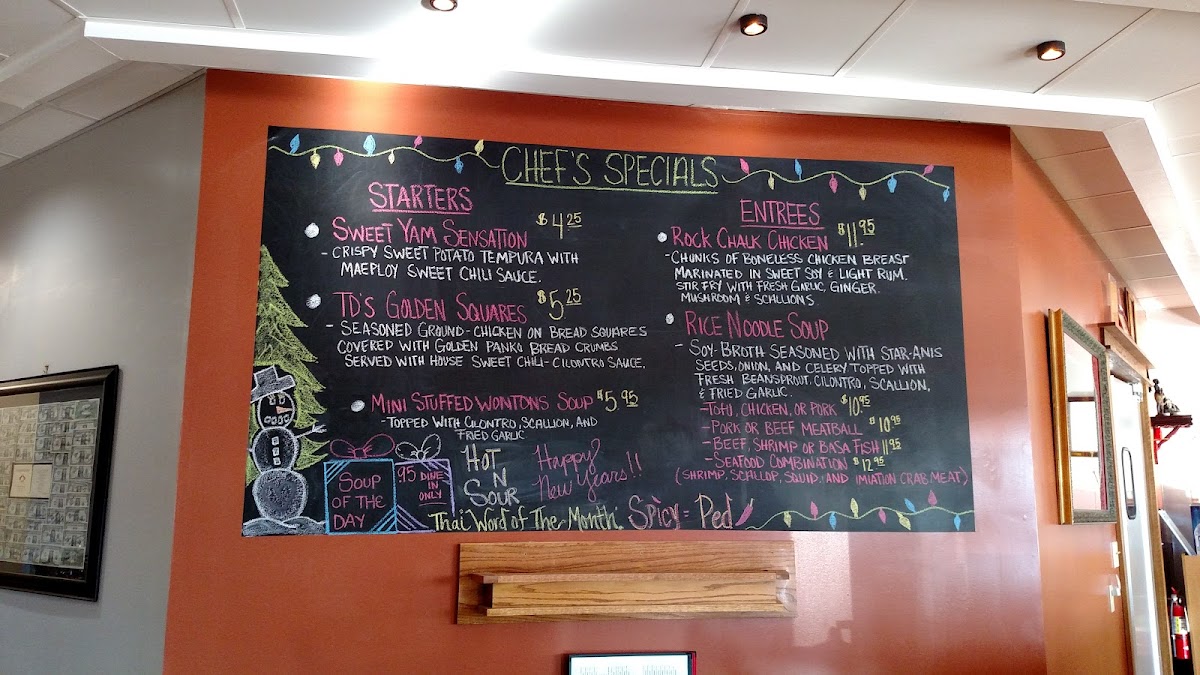 CHEF'S SPECIALS
STARTERS
SWEET YAM SENSATION $4.25
- CRISPY SWEET POTATO TEMPURA WITH
MAEPLOY SWEET CHILI SAUCE.
TD'S GOLDEN SQUARES $5.25
- SEASONED GROUND-CHICKEN ON BREAD SQUARES
COVERED WITH GOLDEN PANKO BREAD CRUMBS
SERVED WITH HOUSE SWEET CHILI-CILONTRO SAUCE.
MINI STUFFED WONTONS SOUP $5.95
- TOPPED WITH CILONTRO, SCALLION, AND
FRIED GARLIC
SOUP
OF THE
DAY
.95 DINE
IN
ONLY
HOT
N
SOUR
Happy
New Years!!
ENTREES
ROCK CHALK CHICKEN $11.95
- CHUNKS OF BONELESS CHICKEN BREAST
MARINATED IN SWEET SOY & LIGHT RUM.
STIR FRY WITH FRESH GARLIC, GINGER.
MUSHROOM & SCALLIONS.
RICE NOODLE SOUP
- SOY-BROTH SEASONED WITH STAR-ANIS
SEEDS, ONION, AND CELERY TOPPED WITH
FRESH BEANSPROUT, CILONTRO, SCALLION,
& FRIED GARLIC.
- TOFU, CHICKEN, OR PORK $10.95
- PORK OR BEEF MEATBALL $10.95
- BEEF, SHRIMP OR BASA FISH 11.95
- SEAFOOD COMBINATION $12.95
(SHRIMP, SCALLOP, SQUID, AND IMIATION CRAB MEAT)
Thai Word of The Month: Spicy = Ped